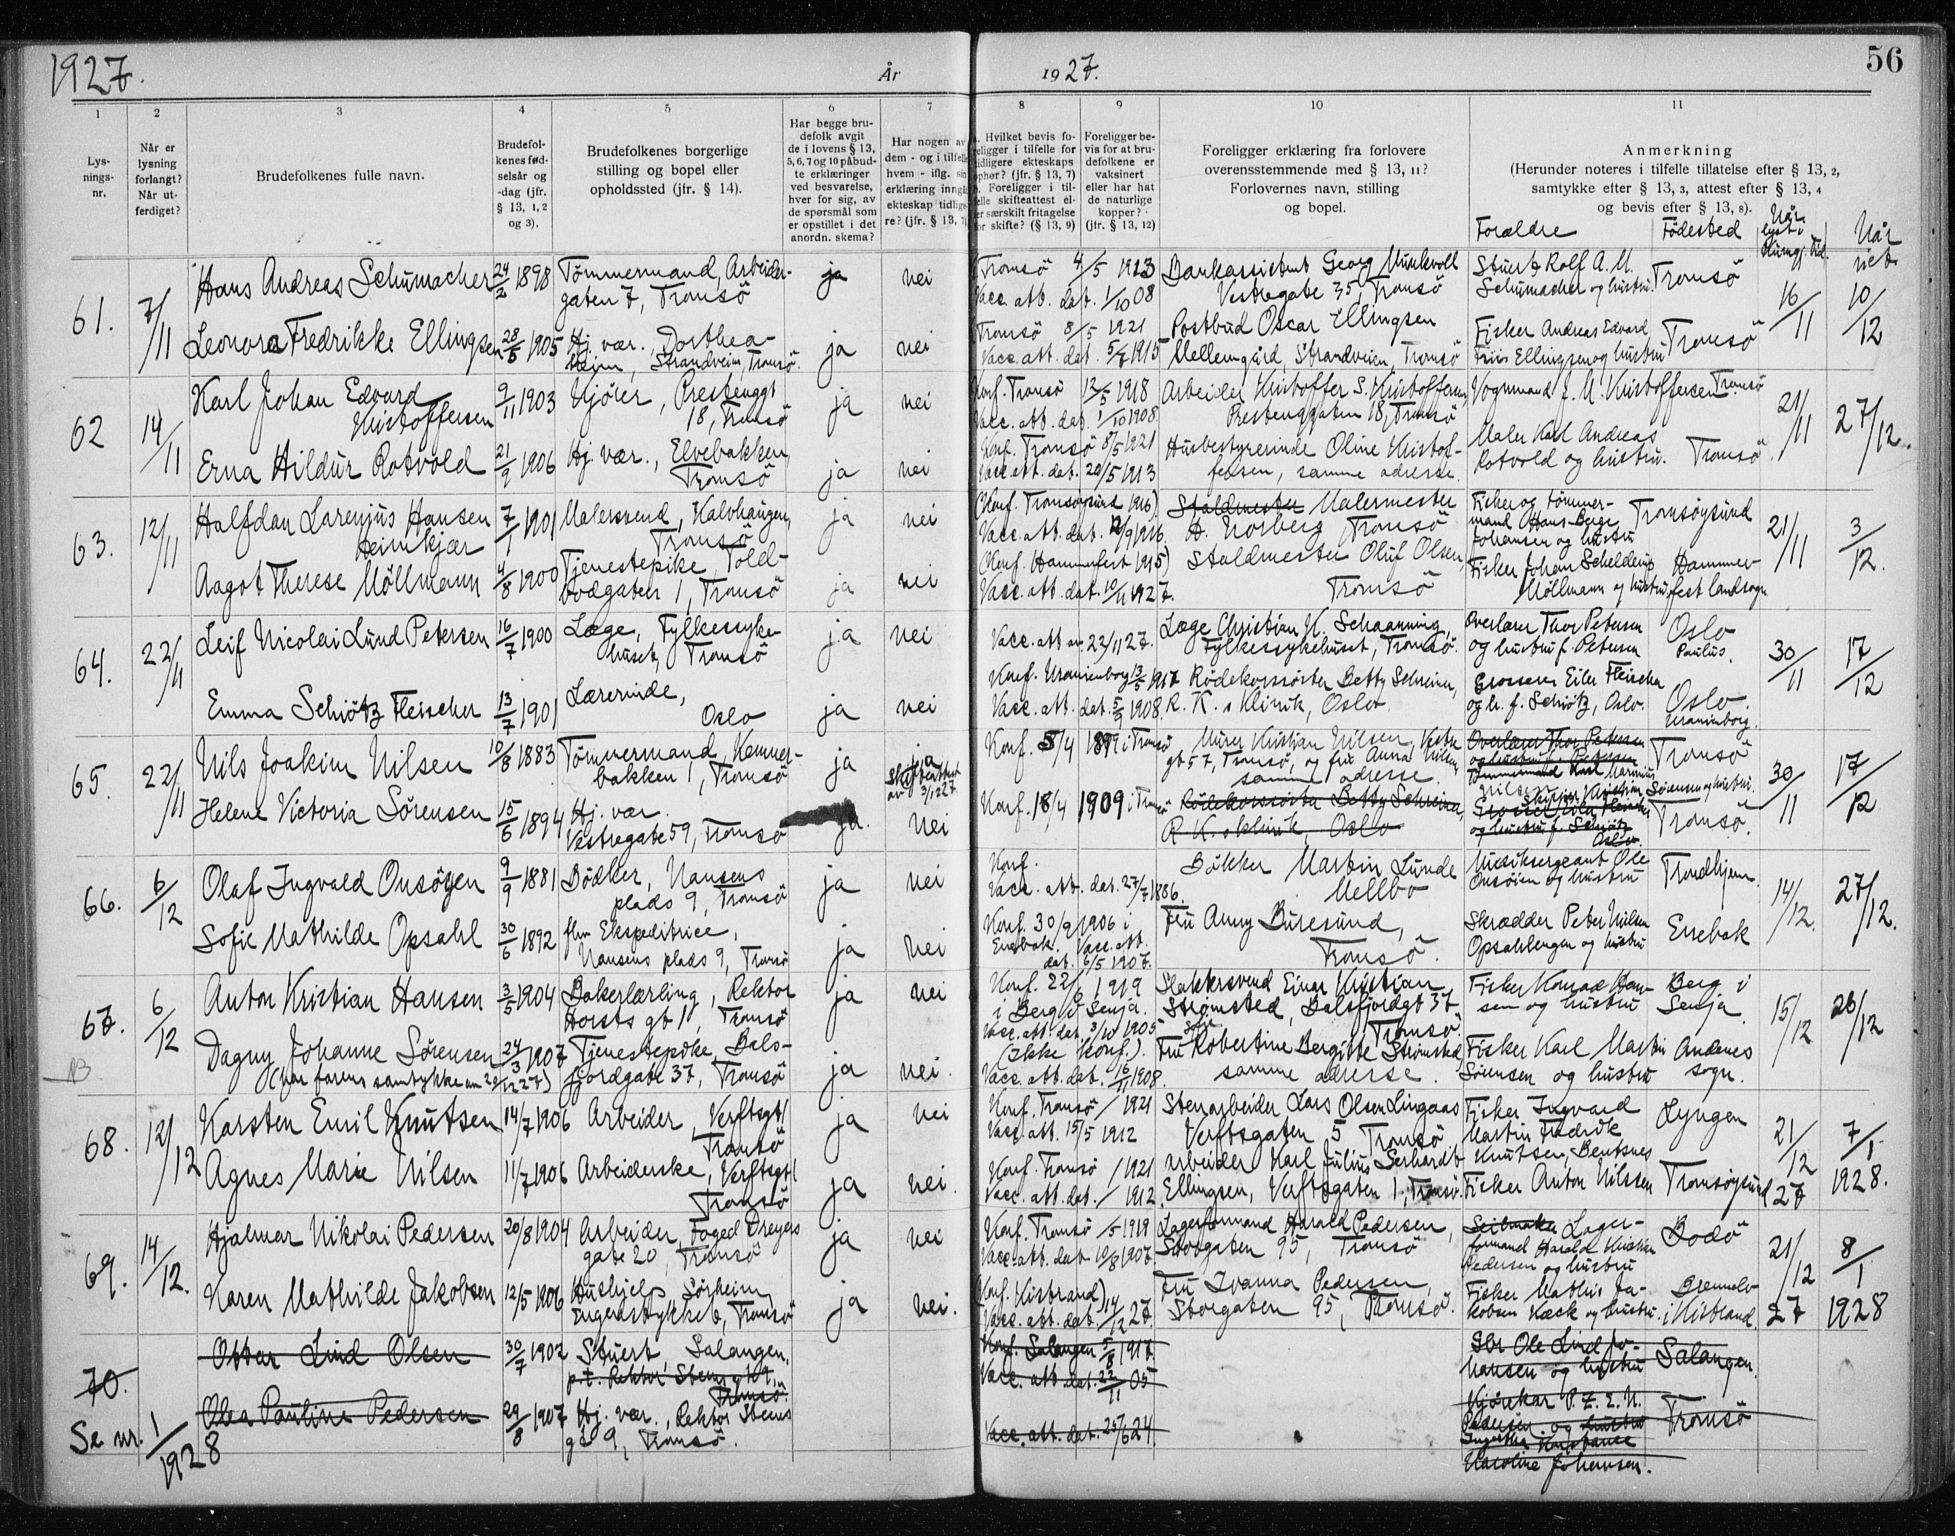 1927.
År
1927.
56
1
2
3
4
5
6
7
8
9
10
11
Lys-
nings-
nr.
Når er
lysning
forlangt?
Når ut-
ferdiget?
Brudefolkenes fulle navn.
Brudefol-
kenes fød-
selsår og
-dag (jfr.
§ 13, 1, 2
og 3).
Brudefolkenes borgerlige
stilling og bopel eller
opholdssted (jfr. § 14).
Har begge bru-
defolk avgit
de i lovens § 13,
5, 6, 7 og 10 påbud-
te erklæringer
ved besvarelse,
hver for sig, av
de spørsmål som
er opstillet i det
anordn. skema?
Har nogen av
dem - og i tilfelle
hvem - iflg. sin
erklæring inngåt
ekteskap tidlige-
re? (jfr. § 13, 7)
Hvilket bevis fo-
religger i tilfelle for
tidligere ekteskaps
ophør? (jfr. § 13, 7)
b. Foreligger i til-
felle skifteattest el-
ler særskilt fritagelse
for skifte? (§ 13, 9)
Foreligger be-
vis for at bru-
defolkene er
vaksinert
eller har hat
de naturlige
kopper?
(jfr. § 13, 12)
Foreligger erklæring fra forlovere
overensstemmende med § 13, 11?
Forlovernes navn, stilling
og bopel.
Anmerkning
(Herunder noteres i tilfelle tillatelse efter § 13, 2,
samtykke efter § 13, 3, attest efter § 13, 4
og bevis efter § 13, 8).
Forældre
Fødested
Når
lyst i
Kungj. Tid.
Når
viet
61.
7/11
Hans Andreas Schumacher
24/2 1898
Tømmermand, Arbeider-
gaten 7, Tromsö
ja
nei
Tromsö 4/5 1913
Vacc. att. dat. 1/10 08
Bankassistent Georg Munkvoll
Vestregate 35, Tromsö
Stuert Rolf A. M.
Schumacher og hustru
Tromsö
16/11
10/12
Leonora Fredrikke Ellingsen
28/5 1905
Hj. vær. Dorthea-
hjem, Strandveien, Tromsö.
ja
nei
Tromsö 8/5 1921
Vacc. att. dat. 5/7 1915
Postbud Oscar Ellingsen
Mellemgård, Strandveien, Tromsö
Fisker Andreas Edvard
Friis Ellingsen og hustru
Tromsö
62
14/11
Karl Johan Edvard
Kristoffersen
9/11 1903
Kjører, Prestenggt
18, Tromsö
ja
nei
Konf. Tromsö 12/5 1918
Vacc. att. dat. 1/10 1908
Arbeider Kristoffer S. Kristoffersen,
Prestenggaten 18, Tromsö
Vognmand J. M. Kristoffersen
Tromsö
21/11
27/12.
Erna Hildur Rotvold
21/9 1906
Hj. vær., Elvebakken
Tromsö
ja
nei
Konf. Tromsö 8/5 1921
Vacc. att. dat. 20/5 1913
Husbestyrerinde Oline Kristof-
fersen, samme adresse.
Maler Karl Andreas
Rotvold og hustru.
Tromsö
63.
12/11
Halfdan Larenjus Hansen
Heimkjær
7/1 1901
Malersvend, Kalvhaugen,
Tromsö
ja
nei
(Konf. Tromsøysund 1916)
Vacc. att. dat. 12/9 1916.
Staldmester Malermester
H. Norberg, Tromsö
Fisker og tømmer-
mand Hans Berge
Johansen og hustru
Tromsøysund
21/11
3/12.
Aagot Therese Möllmann
4/8 1900
Tjenestepike, Told-
bodgaten 1, Tromsö
ja
nei
(Konf. Hammerfest 1915)
Vacc. att. dat. 10/11 1927.
Staldmester Oluf Olsen,
Tromsö
Fisker Johan Schelderup
Möllmann og hustru
Hammer-
fest landsogn
64.
22/11
Leif Nicolai Lund Petersen
16/7 1900
Læge, Fylkessyke-
huset, Tromsö
ja
nei
Vacc. att. av 22/11 27.
Læge Christian N. Schaanning,
Fylkessykehuset, Tromsö.
Overlærer Thor Petersen
og hustru f. Petersen
Oslo
Paulus.
30/11
17/12
Emma Schiötz Fleischer
13/7 1901
Lærerinde,
Oslo
ja
nei
Konf. Uranienborg 13/5 1917
Vacc. att. dat. 5/9 1908.
Rödekorssöster Betty Schreiner,
R. K.s klinik, Oslo.
Grosserer Eiler Fleischer
og h. f. Schiötz, Oslo.
Oslo
Uranienborg.
65.
22/11
Nils Joakim Nilsen
10/8 1883
Tømmermand, Kemner-
bakken 1, Tromsö
ja
ja
skifteattest
av 3/12 27.
Konf. 3/4 1899 i Tromsö
Murer Kristian Nilsen, Vestre
gt 57, Tromsö, og fru Anna Nilsen,
samme adresse.
Overlærer Thor Petersen
og hustru f. Petersen
Tømmermand Karl Marinius
Nilsen
Tromsö
30/11
17/12
Helene Victoria Sørensen
15/6 1894
Hj. vær.
Vestregate 59, Tromsö
ja.
nei
Konf. 18/4 1909 i Tromsö
Rödekorssöster Betty Schreiner,
R. K.s klinik, Oslo
Skipper Kristian Sørensen og hustru.
Grosserer Eiler Fleischer
og hustru f. Schiötz
Oslo.
Tromsö.
66.
6/12
Olaf Ingvald Onsöyen
9/9 1881
Bødker, Nansens
plads 9, Tromsö
ja
nei
Konf.
Vacc. att. dat. 27/7 1886.
Bøkker Martin Lunde
Mellbo
Musiksergeant Ole
Onsöien og hustru
Trondhjem.
14/12.
27/12.
Sofie Mathilde Opsahl
30/6 1892
fhv. Ekspeditrice,
Nansens plads 9, Tromsö
ja
nei
Konf. 30/9 1906 i
Enebak. Vacc. att.
dat. 6/5 1907.
Fru Anny Buresund,
Tromsö.
Skrædder Peter Nilsen
Opsahlengen og hustru
Enebak
67.
6/12
Anton Kristian Hansen
3/5 1904
Bakerlærling, Rektor
Horsts gt 1, Tromsö
ja
nei
Konf. 22/6 1919
i Berg i Senja.
Vacc. att. dat. 3/10 1905
Slaktersvend Einar Kristian
Strømsted, Balsfjordgt 37
Tromsö.
Fisker Konrad Han-
sen og hustru
Berg i
Senja
15/12
26/12
NB
Dagny Johanne Sørensen
(har farens samtykke av 20/12 27)
24/3 1907
Tjenestepike, Bals-
fjordgate 37, Tromsö
ja
nei.
(ikke konf.)
Vacc. att. dat. 16/11 1908.
Fru Robertine Bergitte Strømsted,
samme adresse.
Fisker Karl Martin
Sørensen og hustru
Andenes
sogn.
68.
12/12
Karsten Emil Knutsen
14/7 1906
Arbeider, Verftsgt 1
Tromsö
ja
nei
Konf. Tromsö / 1921
Vacc. att. 15/5 1912
Stenarbeider Lars Olsen Lingaas
Verftsgaten 5 Tromsö
Fisker Ingvard
Martin Fredrik
Knutsen, Bentsnes
Lyngen
21/12
27
7/1
1928.
Agnes Marie Nilsen
11/7 1906
Arbeiderske, Verftsgt 1
Tromsö
ja
nei.
Konf. Tromsö / 1921
Vacc. att. dat. / 1912.
Arbeider Karl Julius Gerhardt
Ellingsen, Verftsgaten 1, Tromsö.
Fisker Anton Nilssen
Tromsøysund
69.
14/12.
Hjalmar Nikolai Pedersen
20/8 1904
Arbeider, Foged Dreyers
gate 20, Tromsö
ja
nei
Konf. Tromsö /5 1919
Vacc. att. dat. 10/8 1907.
Lagerformand Harald Pedersen,
Storgaten 95, Tromsö
Seilmaker Lager-
formand Harald Kristian
Pedersen og hustru
Bodö
21/12
27
8/1
1928
Karen Mathilde Jakobsen
12/5 1906
Hushjelp, Sørheim,
Engenstykket, Tromsö
ja
nei.
Konf. Kistrand)
Vacc. att. dat. 14/12 27.
Fru Ivanna Pedersen,
Storgaten 95, Tromsö.
Fisker Mathis Ja-
kobsen Kæck og hustru.
i Kistrand.
70.
Se nr. 1/1928
Ottar Lind Olsen
30/7 1902
Stuert Salangen.
p.t. Rektor Steens gt 9,
Tromsö.
Konf. Salangen 5/8 1917.
Vacc. att. dat. 22/11 05
Gbr. Ole Lind Jo-
hansen og hustru
Salangen.
Olea Pauline Pedersen
29/8 1907
Hj. vær., Rektor Steens
gt 9, Tromsö.
Vacc. att. dat. 25/6 24.
Kjørekar P. E. N.
Pedersen og hustru
Konstanse
Karoline Johansen.
Tromsö